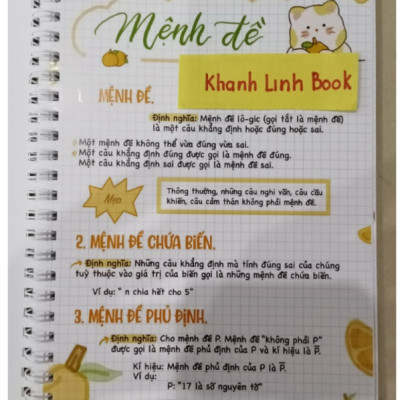 Mệnh đề
Khanh Linh Book
MỆNH ĐỀ.
Định nghĩa: Mệnh đề lô-gic (gọi tắt là mệnh đề)
là một câu khẳng định hoặc đúng hoặc sai.
Một mệnh đề không thể vừa đúng vừa sai.
Một câu khẳng định đúng được gọi là mệnh đề đúng.
Một câu khẳng định sai được gọi là mệnh đề sai.
Mẹo
Thông thường, những câu nghi vấn, câu cầu
khiến, câu cảm thán không phải mệnh đề.
2. MỆNH ĐỀ CHỨA BIẾN.
Định nghĩa: Những câu khẳng định mà tính đúng sai của chúng
tuỳ thuộc vào giá trị của biến gọi là những mệnh đề chứa biến.
Ví dụ: " n chia hết cho 5"
3. MỆNH ĐỀ PHỦ ĐỊNH.
Định nghĩa: Cho mệnh đề P. Mệnh đề "không phải P"
được gọi là mệnh đề phủ định của P và kí hiệu là P̅.
Kí hiệu: Mệnh đề phủ định của P là P̅.
Ví dụ:
P: "17 là số nguyên tố"